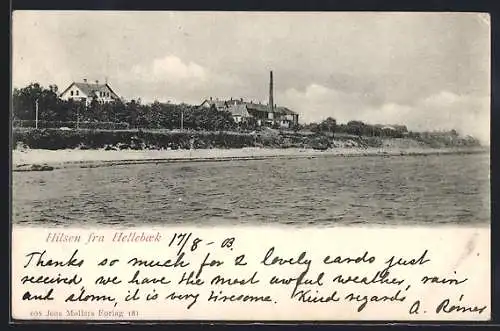 Hilsen fra Hellebæk 17/8 - 03.
Thanks so much for 2 lovely cards just
received, we have the most awful weather, rain
and storm, it is very tiresome. Kind regards
A. Römer
205 Jens Møllers Forlag 181